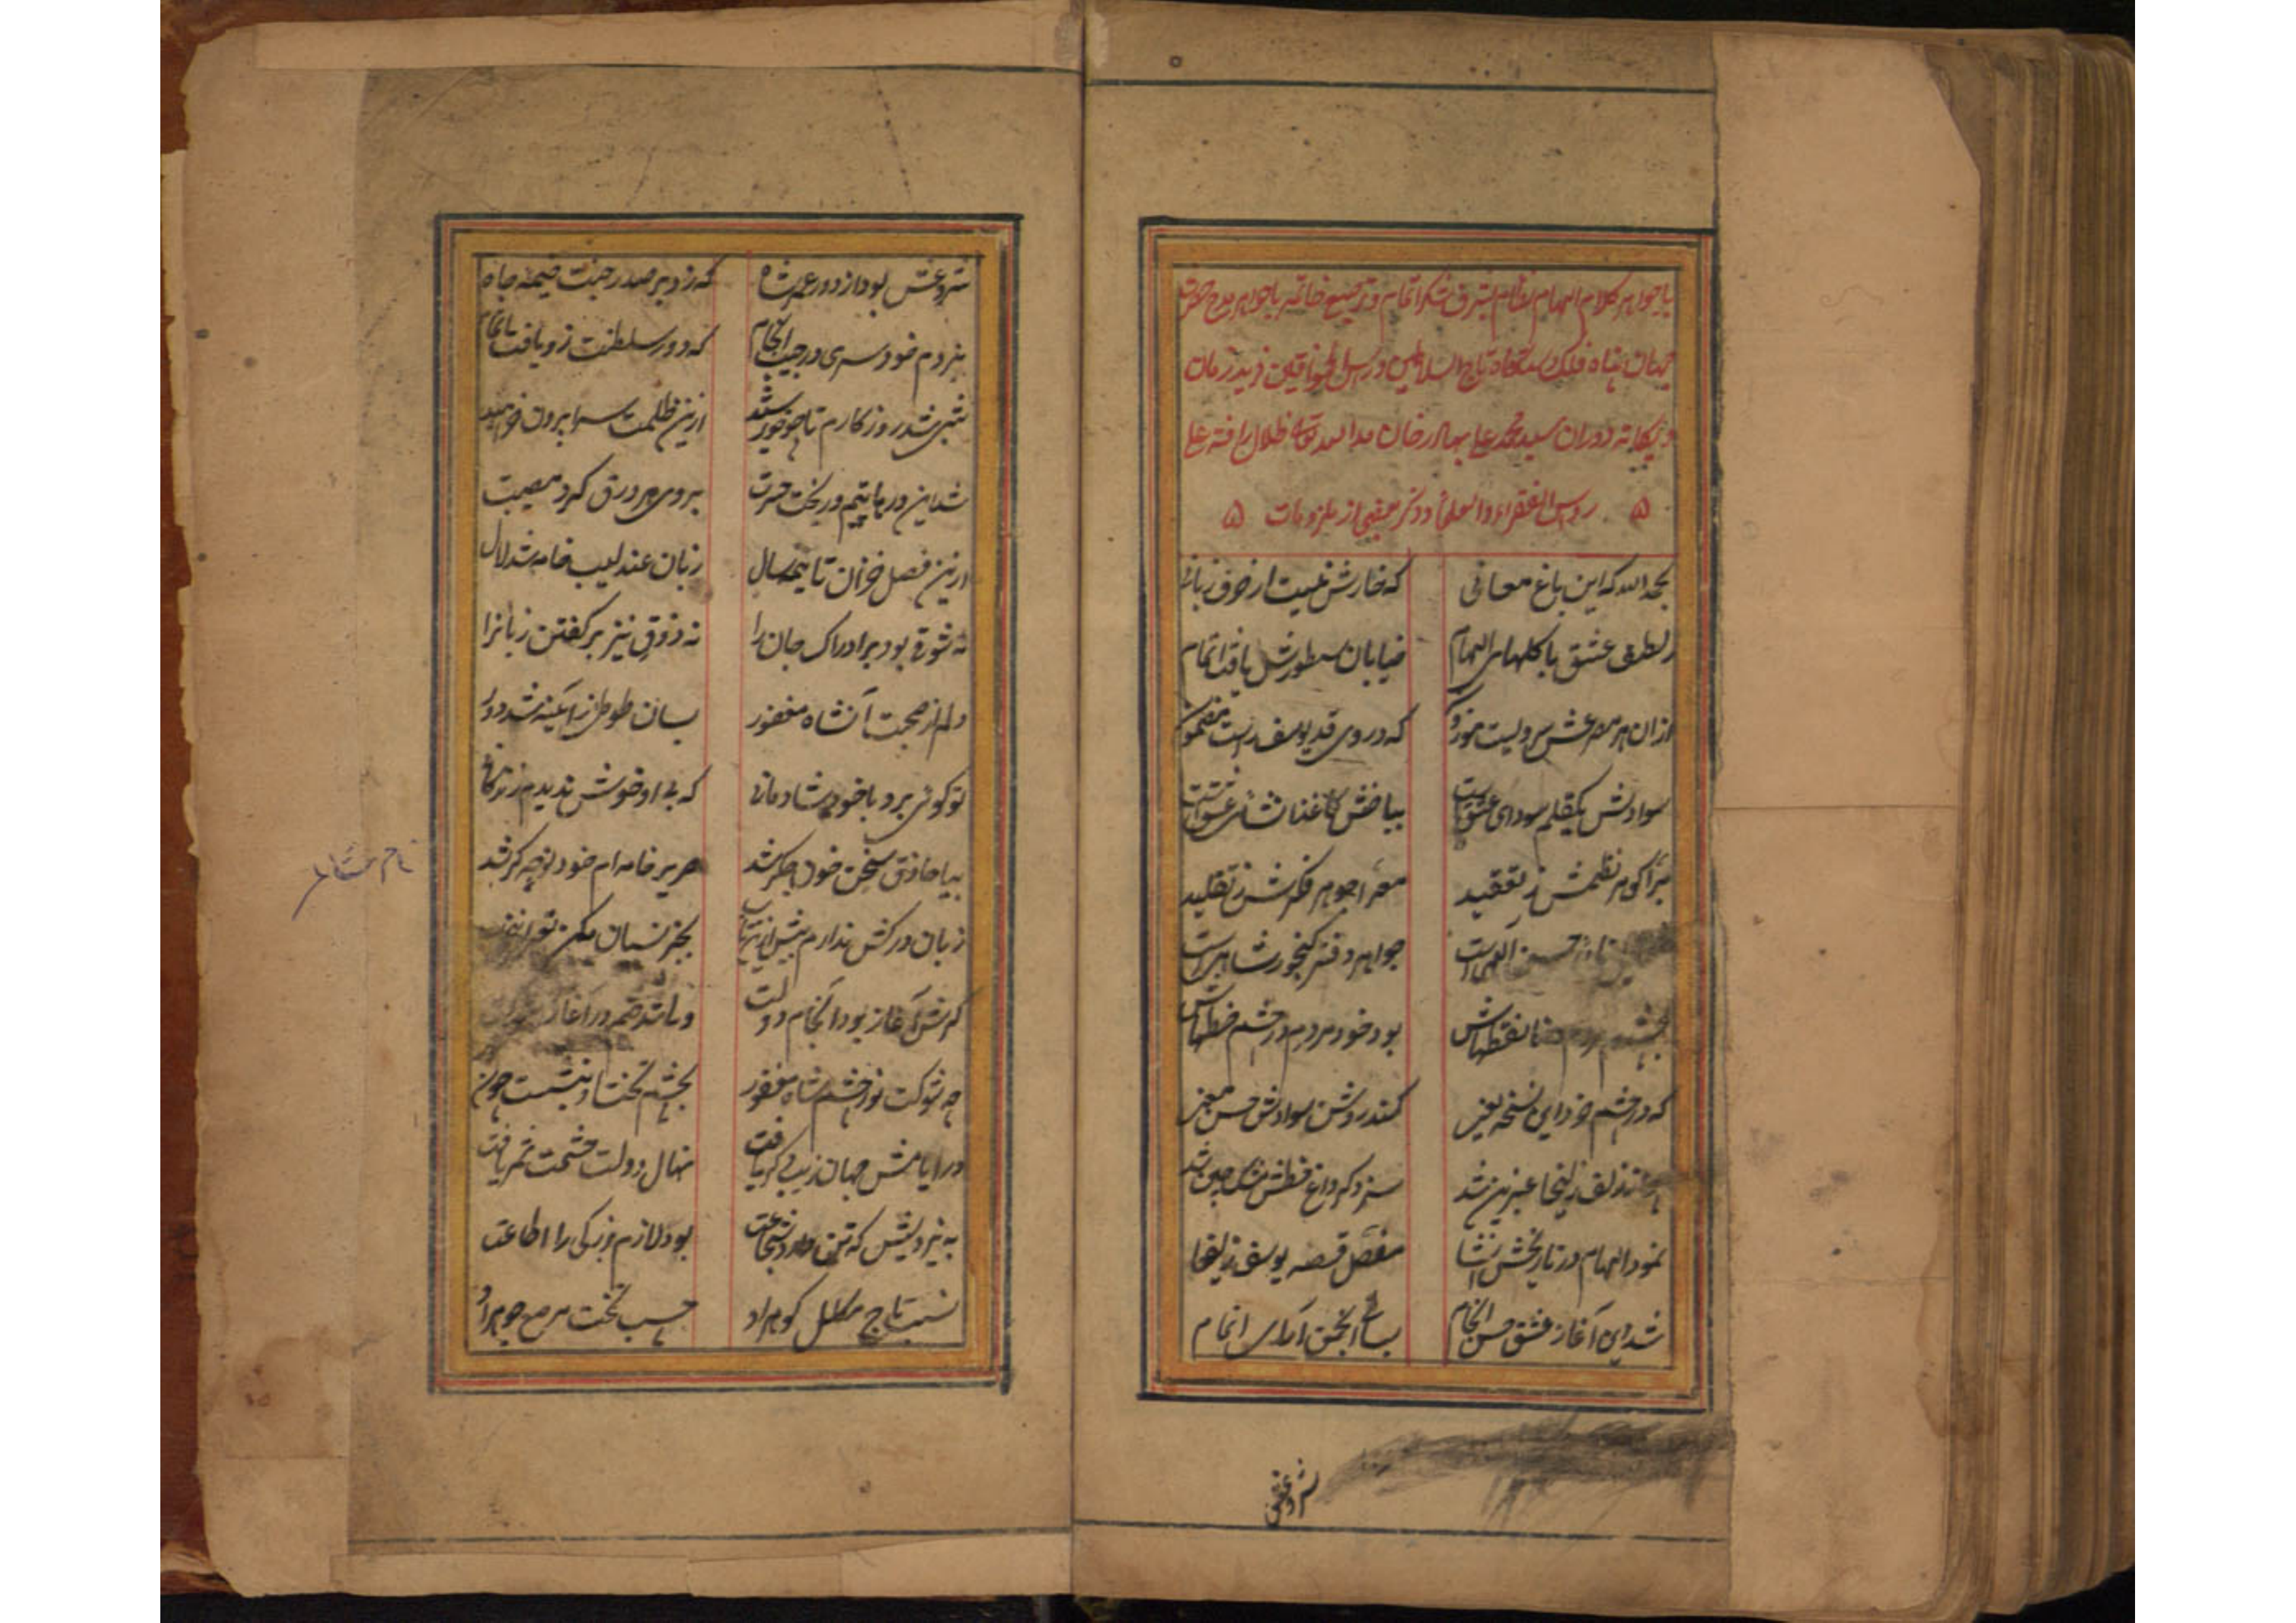 با جواهر کلام الهام نظام بشرف شکر اتمام و ترصیع خاتمه با جواهر مدح حضرت
جهان پناه فلک دستگاه تاج السلاطین و رأس الخواقین فرید زمان
و یگانه دوران سید محمد علی بهادر خان مد الله تعالی ظلال رافته علی
روس الفقراء والعلما و ذکر بعضی از ملزومات
بحمدالله که این باغ معانی که خارش نیست از حرف زبانی
ز لطف عشق با گلهای الهام خیابان سطورش یافت اتمام
ازان هر مصرعش سرویست موزون که در وی قد یوسف راست مضمون
سوادش یکقلم سودای عشق است بیاضش کاغذ انشای عشق است
مبرا گوهر نظمش ز تعقید معرا جوهر فکرش ز تقلید
حسن الهی است جواهر دفتر گنجور شاهی است
بچشم مردم نقطهاش بود خود مردم چشم خطهاش
که در چشم خرد این نسخه نغز کند روشن سوادش حسن
زلف زلیخا عنبرین شد سزد کز داغ خطش مشک چین شد
نمود الهام در تاریخش انشا مفصل قصه یوسف زلیخا
شد این آغاز عشق حسن انجام بساط انجمن آرای اتمام
شروعش
شروعش بود از دور عمر شاه که زد بر صدر جنت خیمه جاه
نبردم خود سری در جیب انجام که دور سلطنت زو یافت اتمام
شبی شد روزگارم تا چو خورشید ازین ظلمت سرا برون خرامید
شد این در یتیم ور یخت حسرت بروی هر ورق گرد مصیبت
ازین فصل خزان تا نیمه سال زبان عندلیب خامه شد لال
نه شوقی بود بر ادراک جان را نه ذوقی نیز بر گفتن زبانرا
دلم از صحبت آنشاه مغفور بسان طوطی ز آئینه شد دور
تو گوئی برد با خود شادمانی که بی او خوش ندیدم زندگانی
بیا حاذق سخن خون جگر شد صریر خامه ام خود نوحه گر شد
زبان درکش ندارم بیش ازین تاب بجز نسیان مکن
گرش آغاز بود انجام دولت و ماند هم در آغاز
چه شوکت نور چشم شاه مغفور بچشم تخت او بنشست چون
در ایامش جهان زیب دگر یافت نهال دولت حشمت ثمر یافت
به نیرویش که تن دارد شجاعت بود لازم بزرگی را اطاعت
نسب تاج مکلل گوهر او حسب تخت مرصع جوهر او